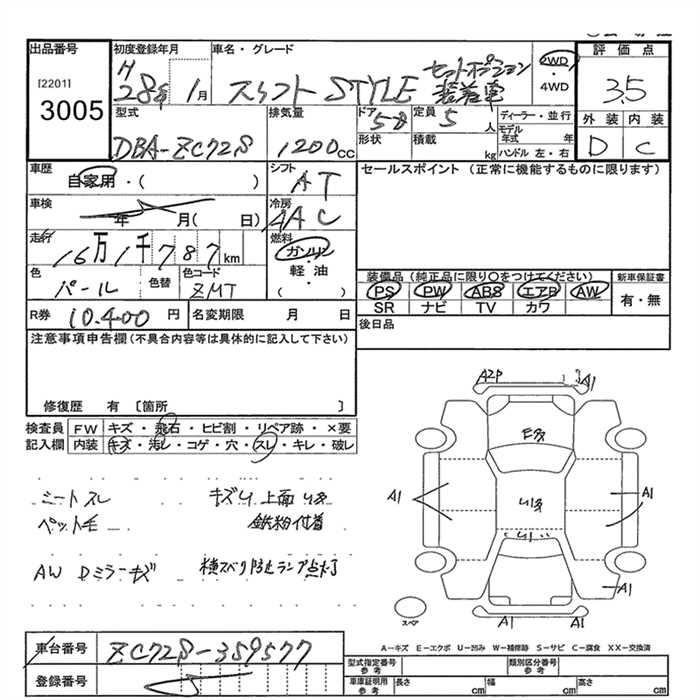 出品番号 初度登録年月 車名・グレード 評価点
[2201]
3005
H28年 1月 スイフト STYLE セットオプション装着車 2WD・4WD 3.5
型式 排気量 ドア 定員 ディーラー・並行 外装 内装
DBA-ZC72S 1200cc 5ドア 5人 モデル年式 年 D C
形状 積載 kg ハンドル 左・右
車歴 自家用・( ) シフト AT セールスポイント(正常に機能するものに限ります)
車検 年 月( 日) 冷房 AAC
走行 16万1千787km 燃料 ガソリン・軽油・( )
色 パール 色替 色コード ZMT
装備品(純正品に限り○をつけてください) 新車保証書
PS PW ABS エアB AW 有・無
SR ナビ TV カワ
R券 10,400円 名変期限 月 日 後日品
注意事項申告欄(不具合内容等は具体的に記入して下さい)
修復歴 有 〔箇所 〕
検査員記入欄 FW・キズ・飛石・ヒビ割・リペア跡・×要
内装・キズ・汚レ・コゲ・穴・スレ・キレ・破レ
シートスレ キズU上面U多
ペット毛 鉄粉付着
AW Dミラーキズ 横スベリ防止ランプ点灯
A2P A1
A1 A1
A1
A1 A1
スペア
A-キズ E-エクボ U-凹み W-補修跡 S-サビ C-腐食 XX-交換済
車台番号 ZC72S-359577
登録番号
型式指定番号参考 類別区分番号参考
車庫証明用参考 長さ cm 幅 cm 高さ cm